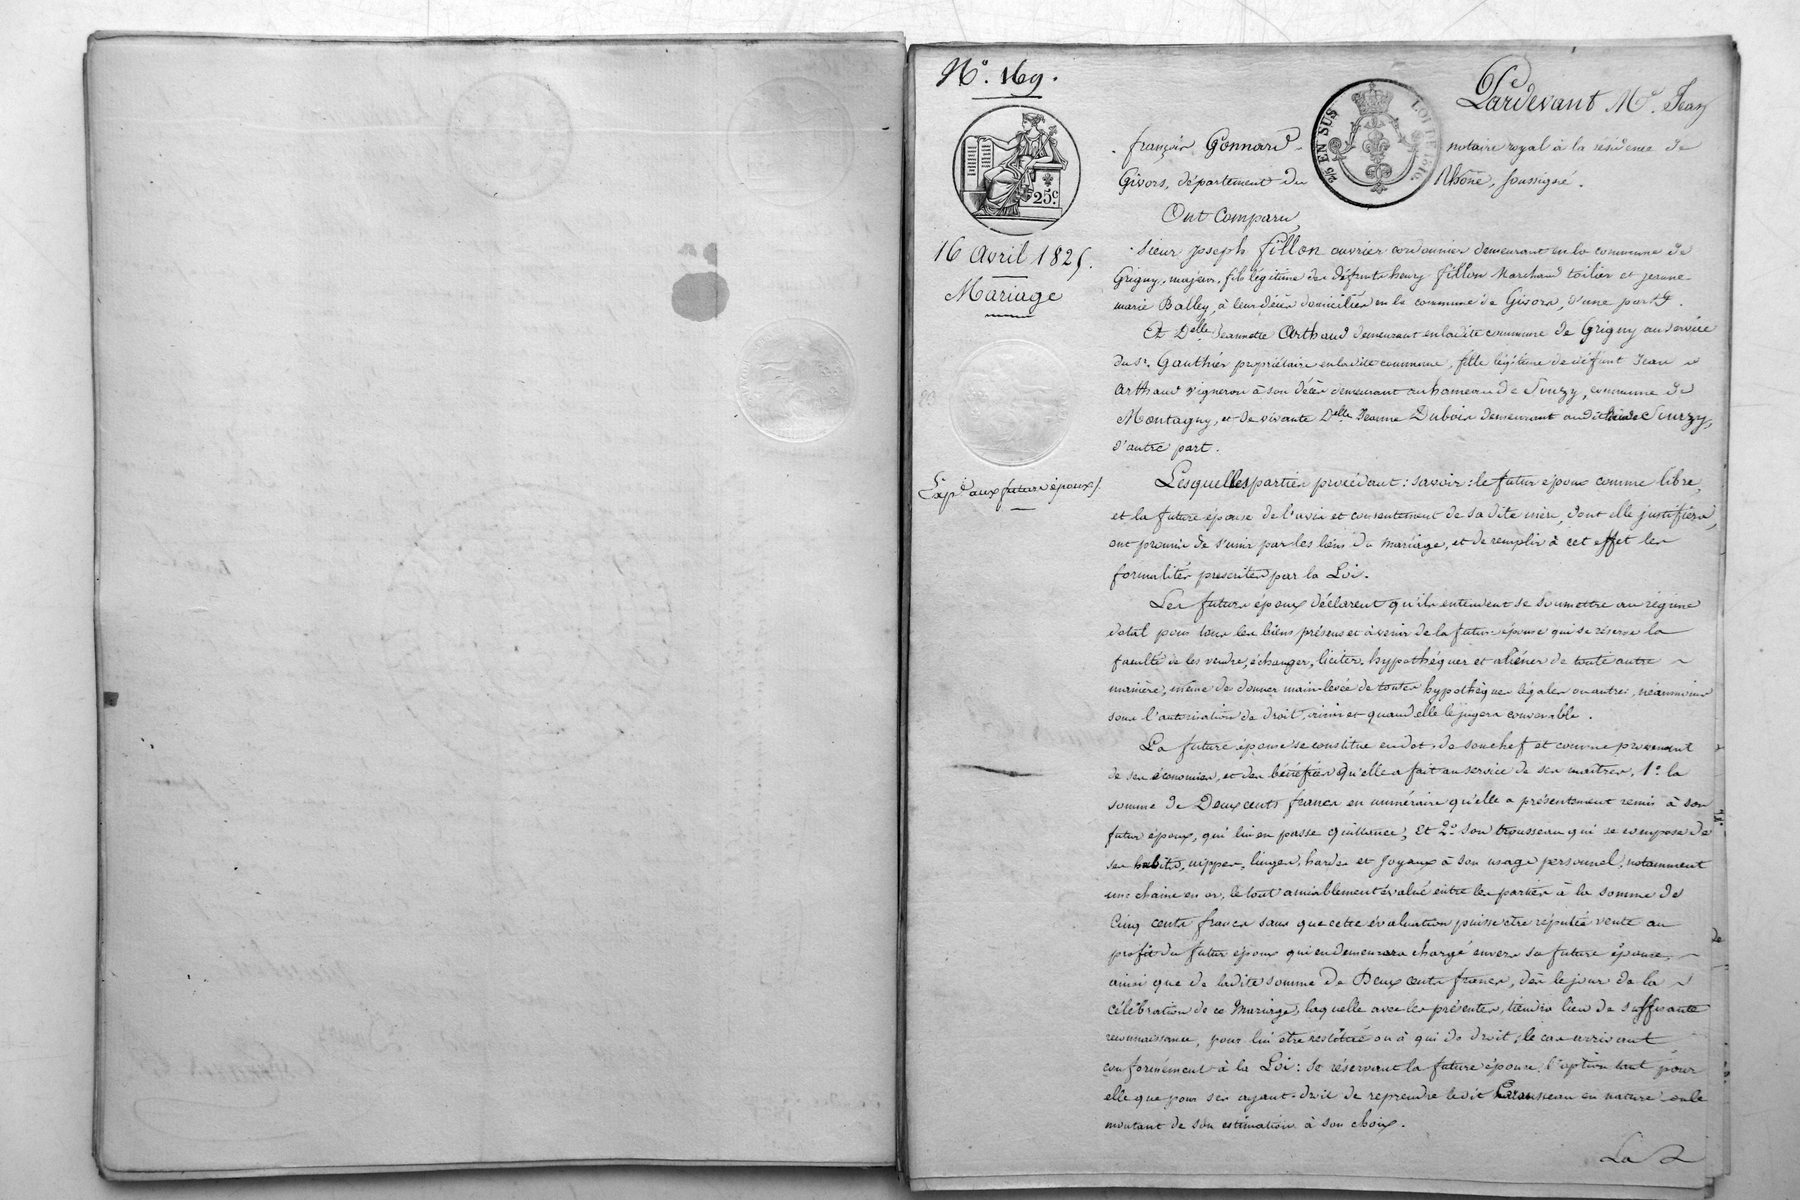 N.° 169.
Pardevant M.e Jean
françois Gonnard notaire royal à la residence de
Givors, département du Rhône, soussigné.
25 EN SUS
LOI DE 1816.
25.c
Ont Comparu
16 Avril 1825.
Mariage
Sieur Joseph fillon ouvrier cordonnier demeurant en la commune de
Grigny, majeur, fils légitime des défunts henry fillon Marchand toilier et jeanne
marie Balley, à leur décès domiciliés en la commune de Givors, d'une part.
Et D.elle Jeannette Arthaud demeurant en ladite commune de Grigny au service
du S.r Gauthier propriétaire en ladite commune, fille légitime de défunt Jean
Arthaud vigneron à son décès demeurant au hameau de Sourzy, commune de
Montagny, et de vivante D.elle Jeanne Dubois demeurant audit lieu de Sourzy,
d'autre part.
Exp.é aux futurs époux /.
Lesquelles parties procédant : savoir : le futur epoux comme libre,
et la future épouse de l'avis et consentement de sadite mère, dont elle justifiera,
ont promis de s'unir par les liens du mariage, et de remplir à cet effet les
formalités prescrites par la Loi.
Les futurs époux déclarent qu'ils entendent se soumettre au régime
dotal pour tous les biens présens et à venir de la future épouse qui se réserve la
faculté de les vendre, échanger, liciter, hypothéquer et aliéner de toute autre
manière, même de donner main-levée de toutes hypothèques légales ou autres, néanmoins
sous l'autorisation de droit, ainsi et quand elle le jugera convenable.
La future épouse se constitue en dot, de son chef et comme provenant
de ses économies, et des bénéfices qu'elle a fait au service de ses maitres, 1.° la
somme de Deux cents francs en numéraire qu'elle a présentement remis à son
futur époux, qui lui en passe quittance; Et 2.° son trousseau qui se compose de
ses habits, nippes, linges, hardes et Joyaux à son usage personnel, notamment
une chaine en or, le tout amiablement évalué entre les parties à la somme de
Cinq cents francs sans que cette évaluation puisse etre réputée vente au
profit du futur époux qui en demeurera chargé envers sa future épouse,
ainsi que de ladite somme de Deux cents francs, dès le jour de la
célébration de ce mariage, laquelle avec les présentes, tiendra lieu de suffisante
reconnaissance, pour lui etre restitué ou à qui de droit, le cas arrivant
conformément à la Loi : se réservant la future épouse, l'option tant pour
elle que pour ses ayant-droit de reprendre ledit trousseau en nature ou le
montant de son estimation à son choix.
La